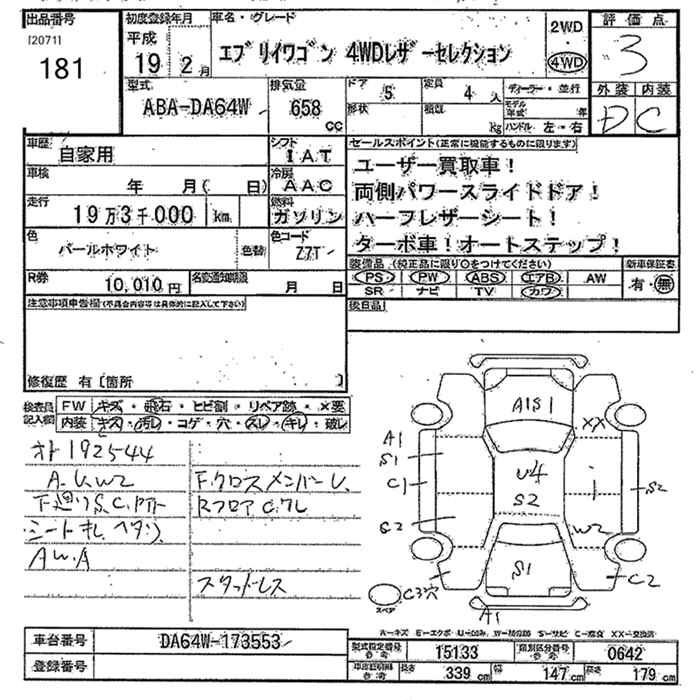 出品番号
初度登録年月
車名・グレード
評価点
[20711
平成
2WD
・
4WD
181
19年2月
エブリイワゴン 4WDレザーセレクション
3
型式
排気量
ドア 5
定員 4人
ディーラー・並行
外装 内装
ABA-DA64W
658
cc
形状
kg
モデル年式 年
ハンドル 左・右
D C
車歴
自家用
シフト
IAT
セールスポイント(正常に機能するものに限ります)
ユーザー買取車!
車検
年 月( 日)
冷房
AAC
両側パワースライドドア!
走行
19万3千000 km
燃料
ガソリン
ハーフレザーシート!
色
パールホワイト
色替
色コード
Z7T
ターボ車!オートステップ!
R券
10,010円
名変通知期限
月 日
装備品 (純正品に限り○をつけてください)
新車保証書
PS PW ABS エアB AW
有・無
SR ナビ TV カワ
注意事項申告欄(不具合内容等は具体的に記入して下さい)
後日品
修復歴 有〔箇所 〕
検査員記入欄
FW キズ・飛石・ヒビ割・リペア跡・×要
内装 キズ・汚レ・コゲ・穴・スレ・キレ・破レ
オト 192544
A.U.W2
F.クロスメンバーU.
下廻りS.C.
RフロアCクレ
シート
AW.A
スタッドレス
A1S1
XX
A1
S1
C1
U4
S2
S2
S2
W2
S1
C2
C3穴
スペア
A1
A-キズ E-エクボ U-凹み W-補修跡 S-サビ C-腐食 XX-交換済
車台番号
DA64W-173553
型式指定番号
参考
15133
類別区分番号
参考
0642
登録番号
車庫証明用
参考
長さ 339cm 幅 147cm 高さ 179cm